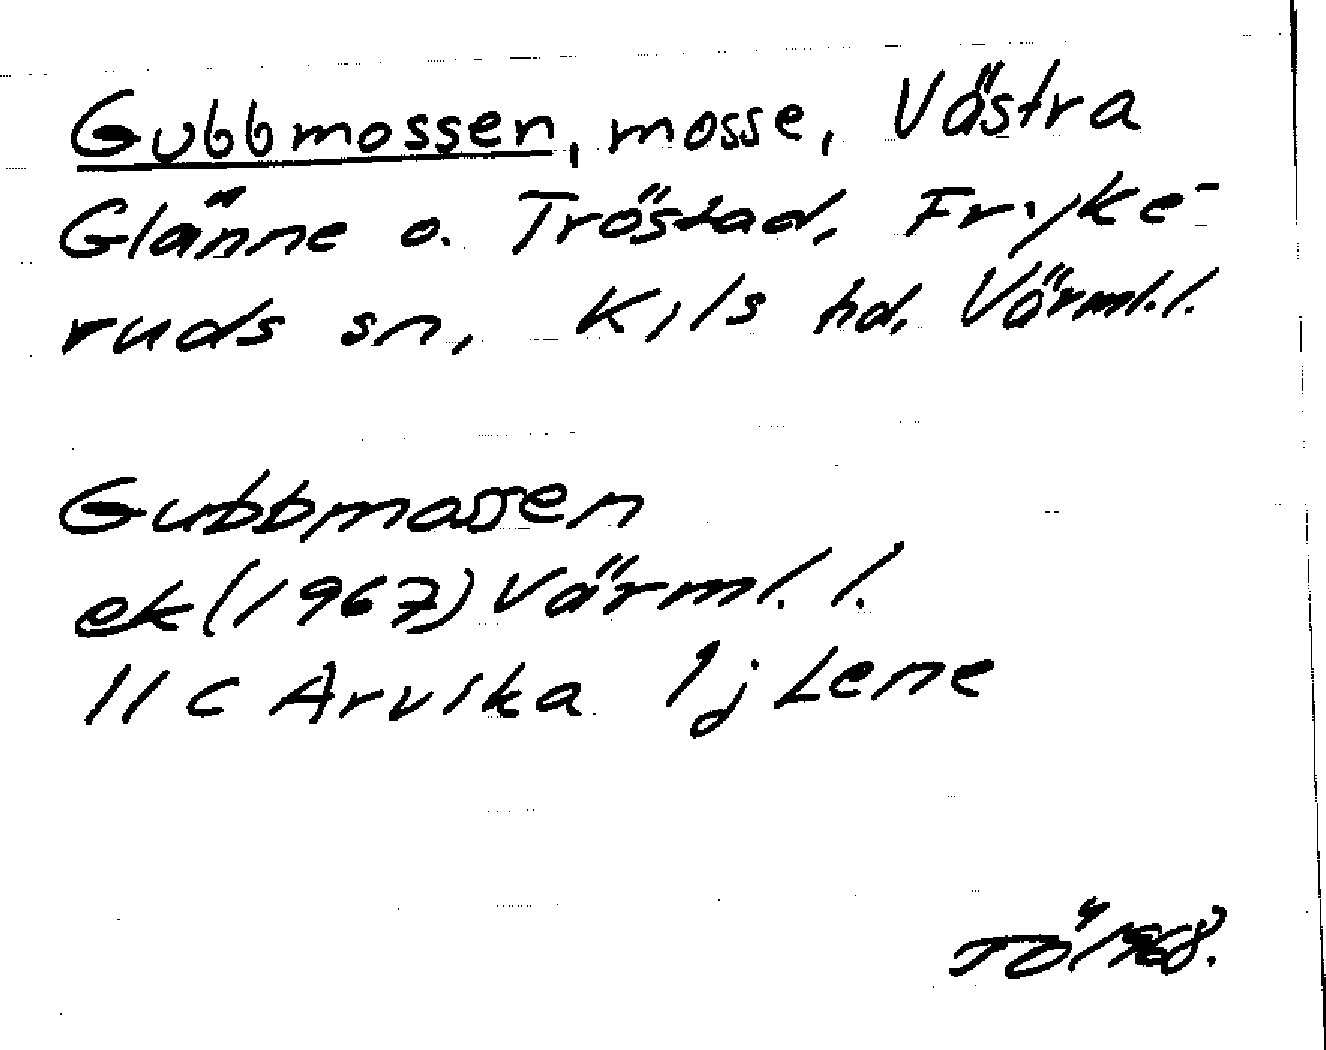 Gubbmossen, mosse, Västra
Glänne o. Tröstad, Fryke-
ruds sn, Kils hd, Värml. l.
Gubbmossen
ek (1967) Värml. l.
11 C Arvika 1j Lene
TÖ 1968.